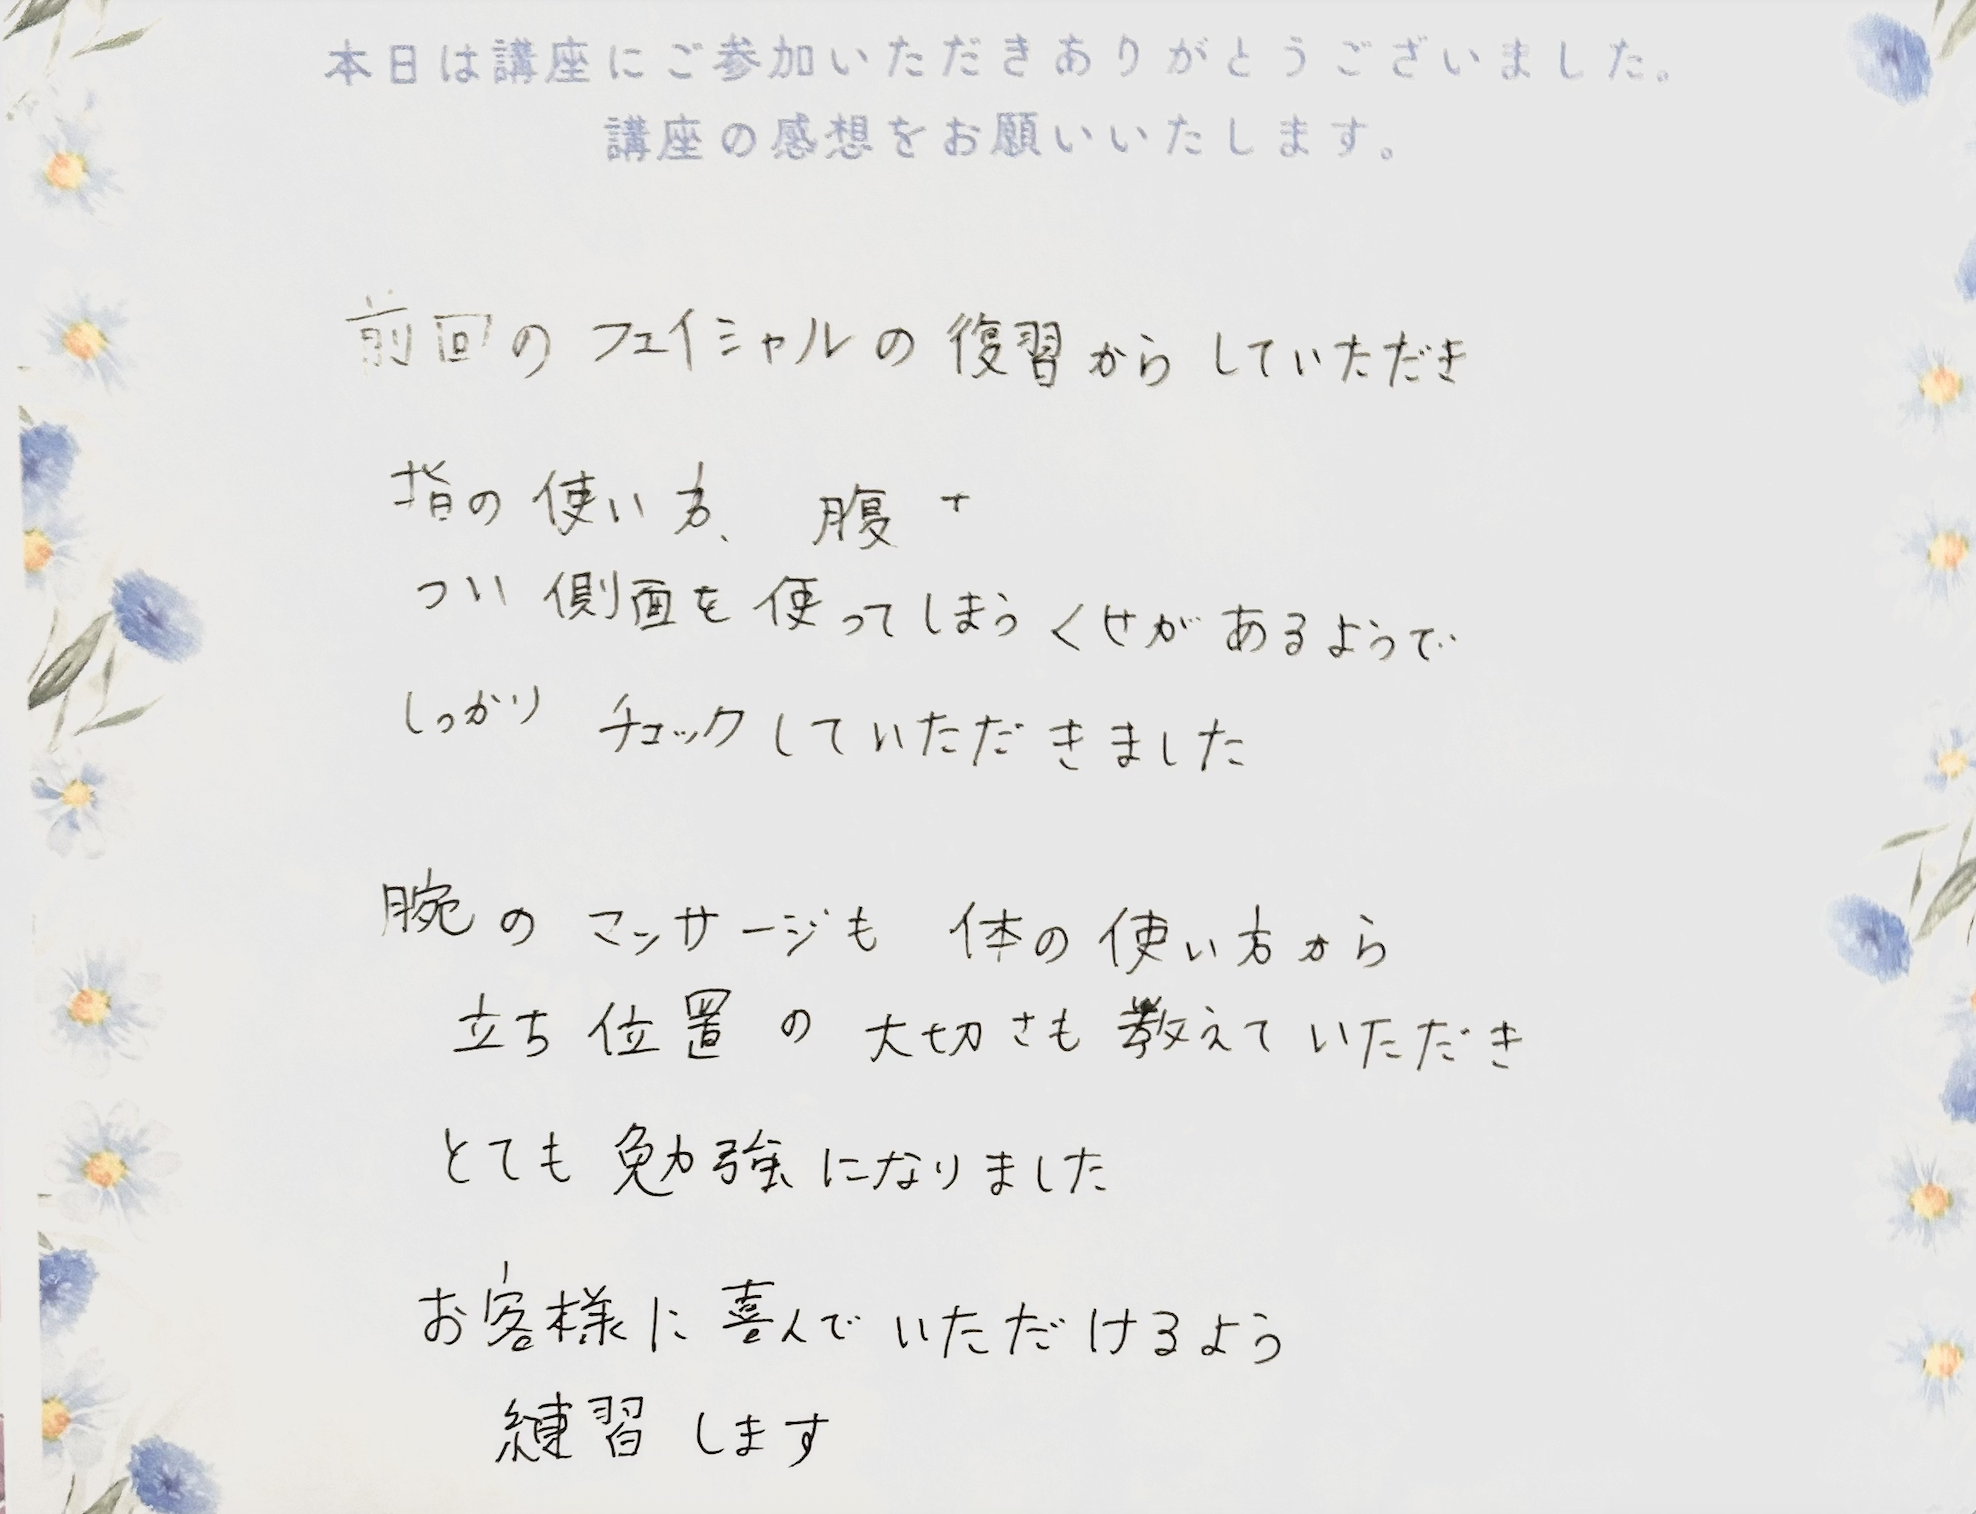 本日は講座にご参加いただきありがとうございました。
講座の感想をお願いいたします。
前回のフェイシャルの復習からしていただき
指の使い方、腹+
つい側面を使ってしまうくせがあるようで
しっかりチェックしていただきました
腕のマッサージも体の使い方から
立ち位置の大切さも教えていただき
とても勉強になりました
お客様に喜んでいただけるよう
練習します